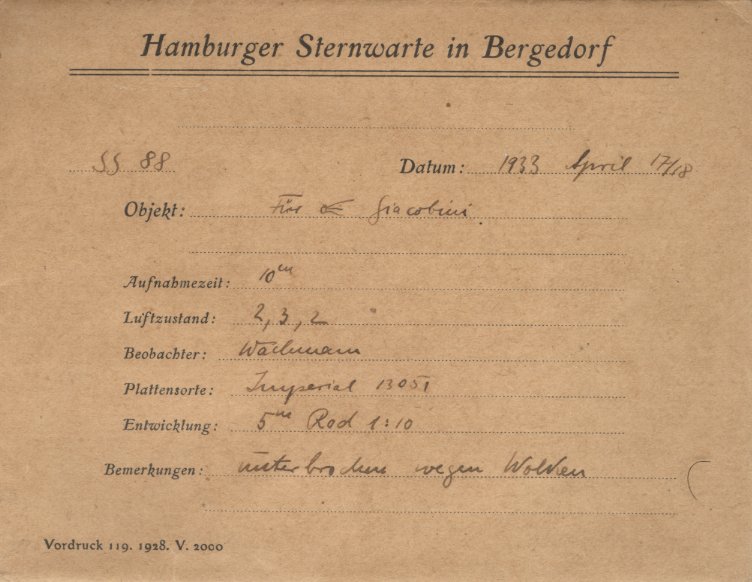 Hamburger Sternwarte in Bergedorf
SS 88 Datum: 1933 April 17/18
Objekt: Für ☄ Giacobini
Aufnahmezeit: 10m
Luftzustand: 2, 3, 2
Beobachter: Wachmann
Plattensorte: Imperial 1305I
Entwicklung: 5m Rod 1:10
Bemerkungen: unterbrochen wegen Wolken
Vordruck 119. 1928. V. 2000